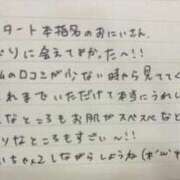 タート本指名のおにいさん、
ぐりに会えてよかったへ!!
ムの口コミが少ない時から見てく
れまでいただけて本当にうれし
なところもお肌がスベスベなと
りなところもすごい〜!!
いちゃ2しながらしようね(*'ω'*